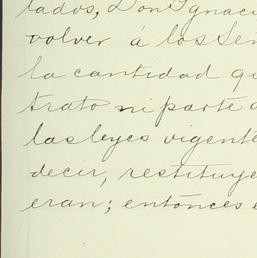 lados, Don Ignaci
volver á los Señ
la cantidad qu
trato ni parte d
las leyes vigente
decir, restituye
eran; entónces e